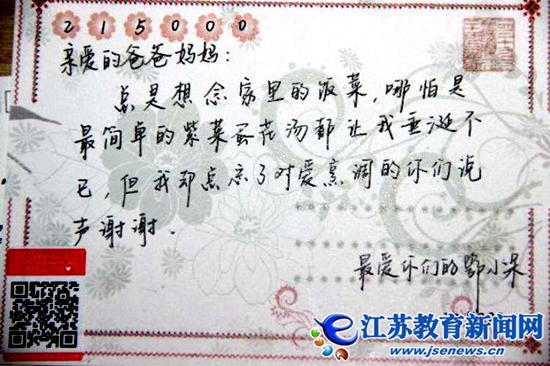 215000
亲爱的爸爸妈妈:
总是想念家里的饭菜,哪怕是
最简单的紫菜蛋花汤都让我垂涎不
已,但我却总忘了对爱烹调的你们说
声谢谢.
最爱你们的鄂小呆
江苏教育新闻网
www.jsenews.cn